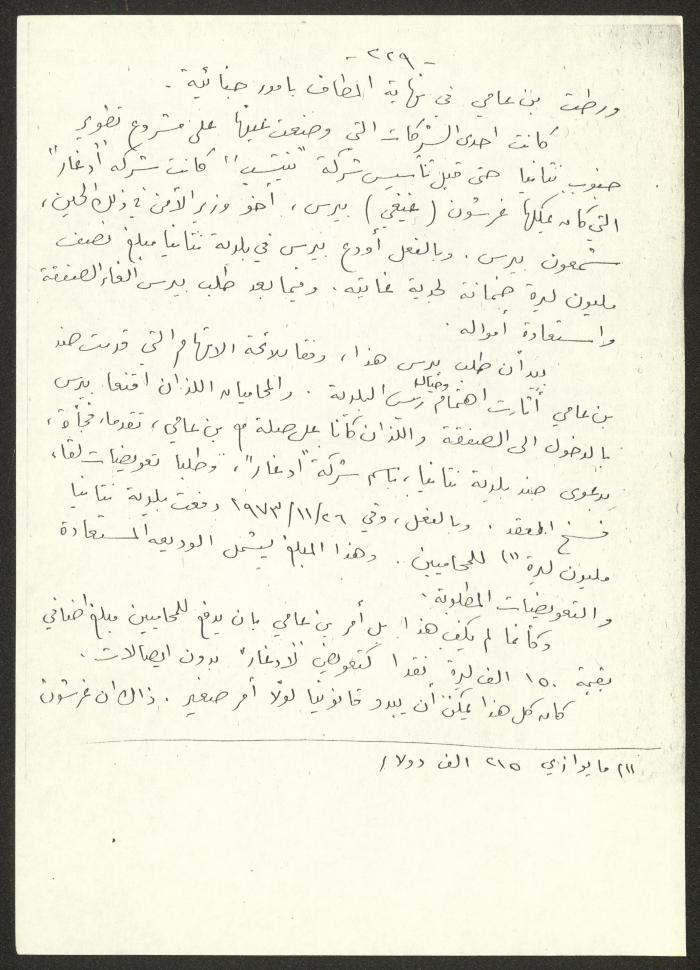 - ٢٢٩ -
ورطت بن عامي في نهاية المطاف بامور جنائية .
كانت احدى الشركات التي وضعت عينها على مشروع تطوير
جنوب نتانيا حتى قبل تأسيس شركة " كانت شركة "أدغار"
التي كان يملكها غرشون ( غيغي ) بيرس ، أخو وزير الأمن في ذلك الحين ،
شمعون بيرس . وبالفعل أودع بيرس في بلدية نتانيا مبلغ نصف
مليون ليرة ضمانة لجدية غايته . وفيما بعد طلب بيرس الغاء الصفقة
واستعادة أمواله .
بيد أن طلب بيرس هذا ، وفقا للائحة الاتهام التي قدمت ضد
بن عامي أثارت اهتمام وخيال رئيس البلدية . والمحاميان اللذان اقنعا بيرس
بالدخول الى الصفقة واللذان كانا على صلة مع بن عامي ، تقدما ، فجأة ،
بدعوى ضد بلدية نتانيا ، باسم شركة "أدغار" ، وطلبا تعويضات لقاء
فسخ العقد . وبالفعل ، وفي ٢٦/١١/١٩٧٣ دفعت بلدية نتانيا
مليون ليرة (١) للمحاميين . وهذا المبلغ يشمل الوديعة المستعادة
والتعويضات المطلوبة .
وكأنما لم يكف هذا بل أمر بن عامي بان يدفع للمحاميين مبلغ اضافي
بقيمة ١٥٠ الف ليرة نقدا كتعويض "لادغار" بدون ايصالات .
كان كل هذا يمكن أن يبدو قانونيا لولا أمر صغير . ذاك ان غرشون
(١) ما يوازي ٢١٥ الف دولار